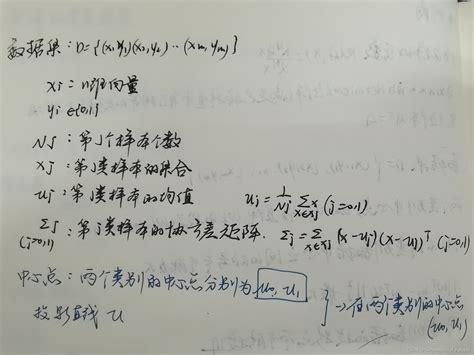 数据集：D={(x₁,y₁)(x₂,y₂)··(xₘ,yₘ)}
xj = n维向量
yi ∈{0,1}
Nj：第j个样本个数
Xj：第j类样本的集合
uj：第j类样本的均值 uj = 1/Nj Σ x (j=0,1) x∈Xj
Σj：第j类样本的协方差矩阵. Σj = Σ (x-uj)(x-uj)ᵀ (j=0,1) x∈Xj
(j=0,1)
中心点：两个类别的中心点分别为 u₀, u₁
投影直线 u
}→在两个类别的中心点
(u₀, u₁)